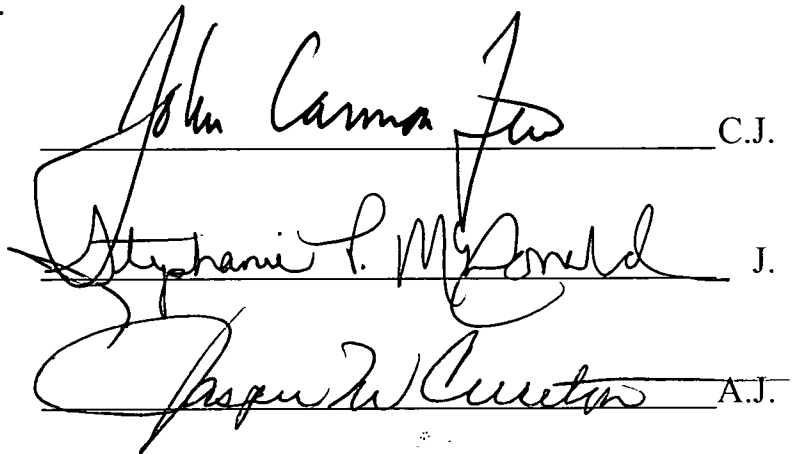 John Cannon Few C.J.
Stephanie P. McDonald J.
Jasper W Cureton A.J.